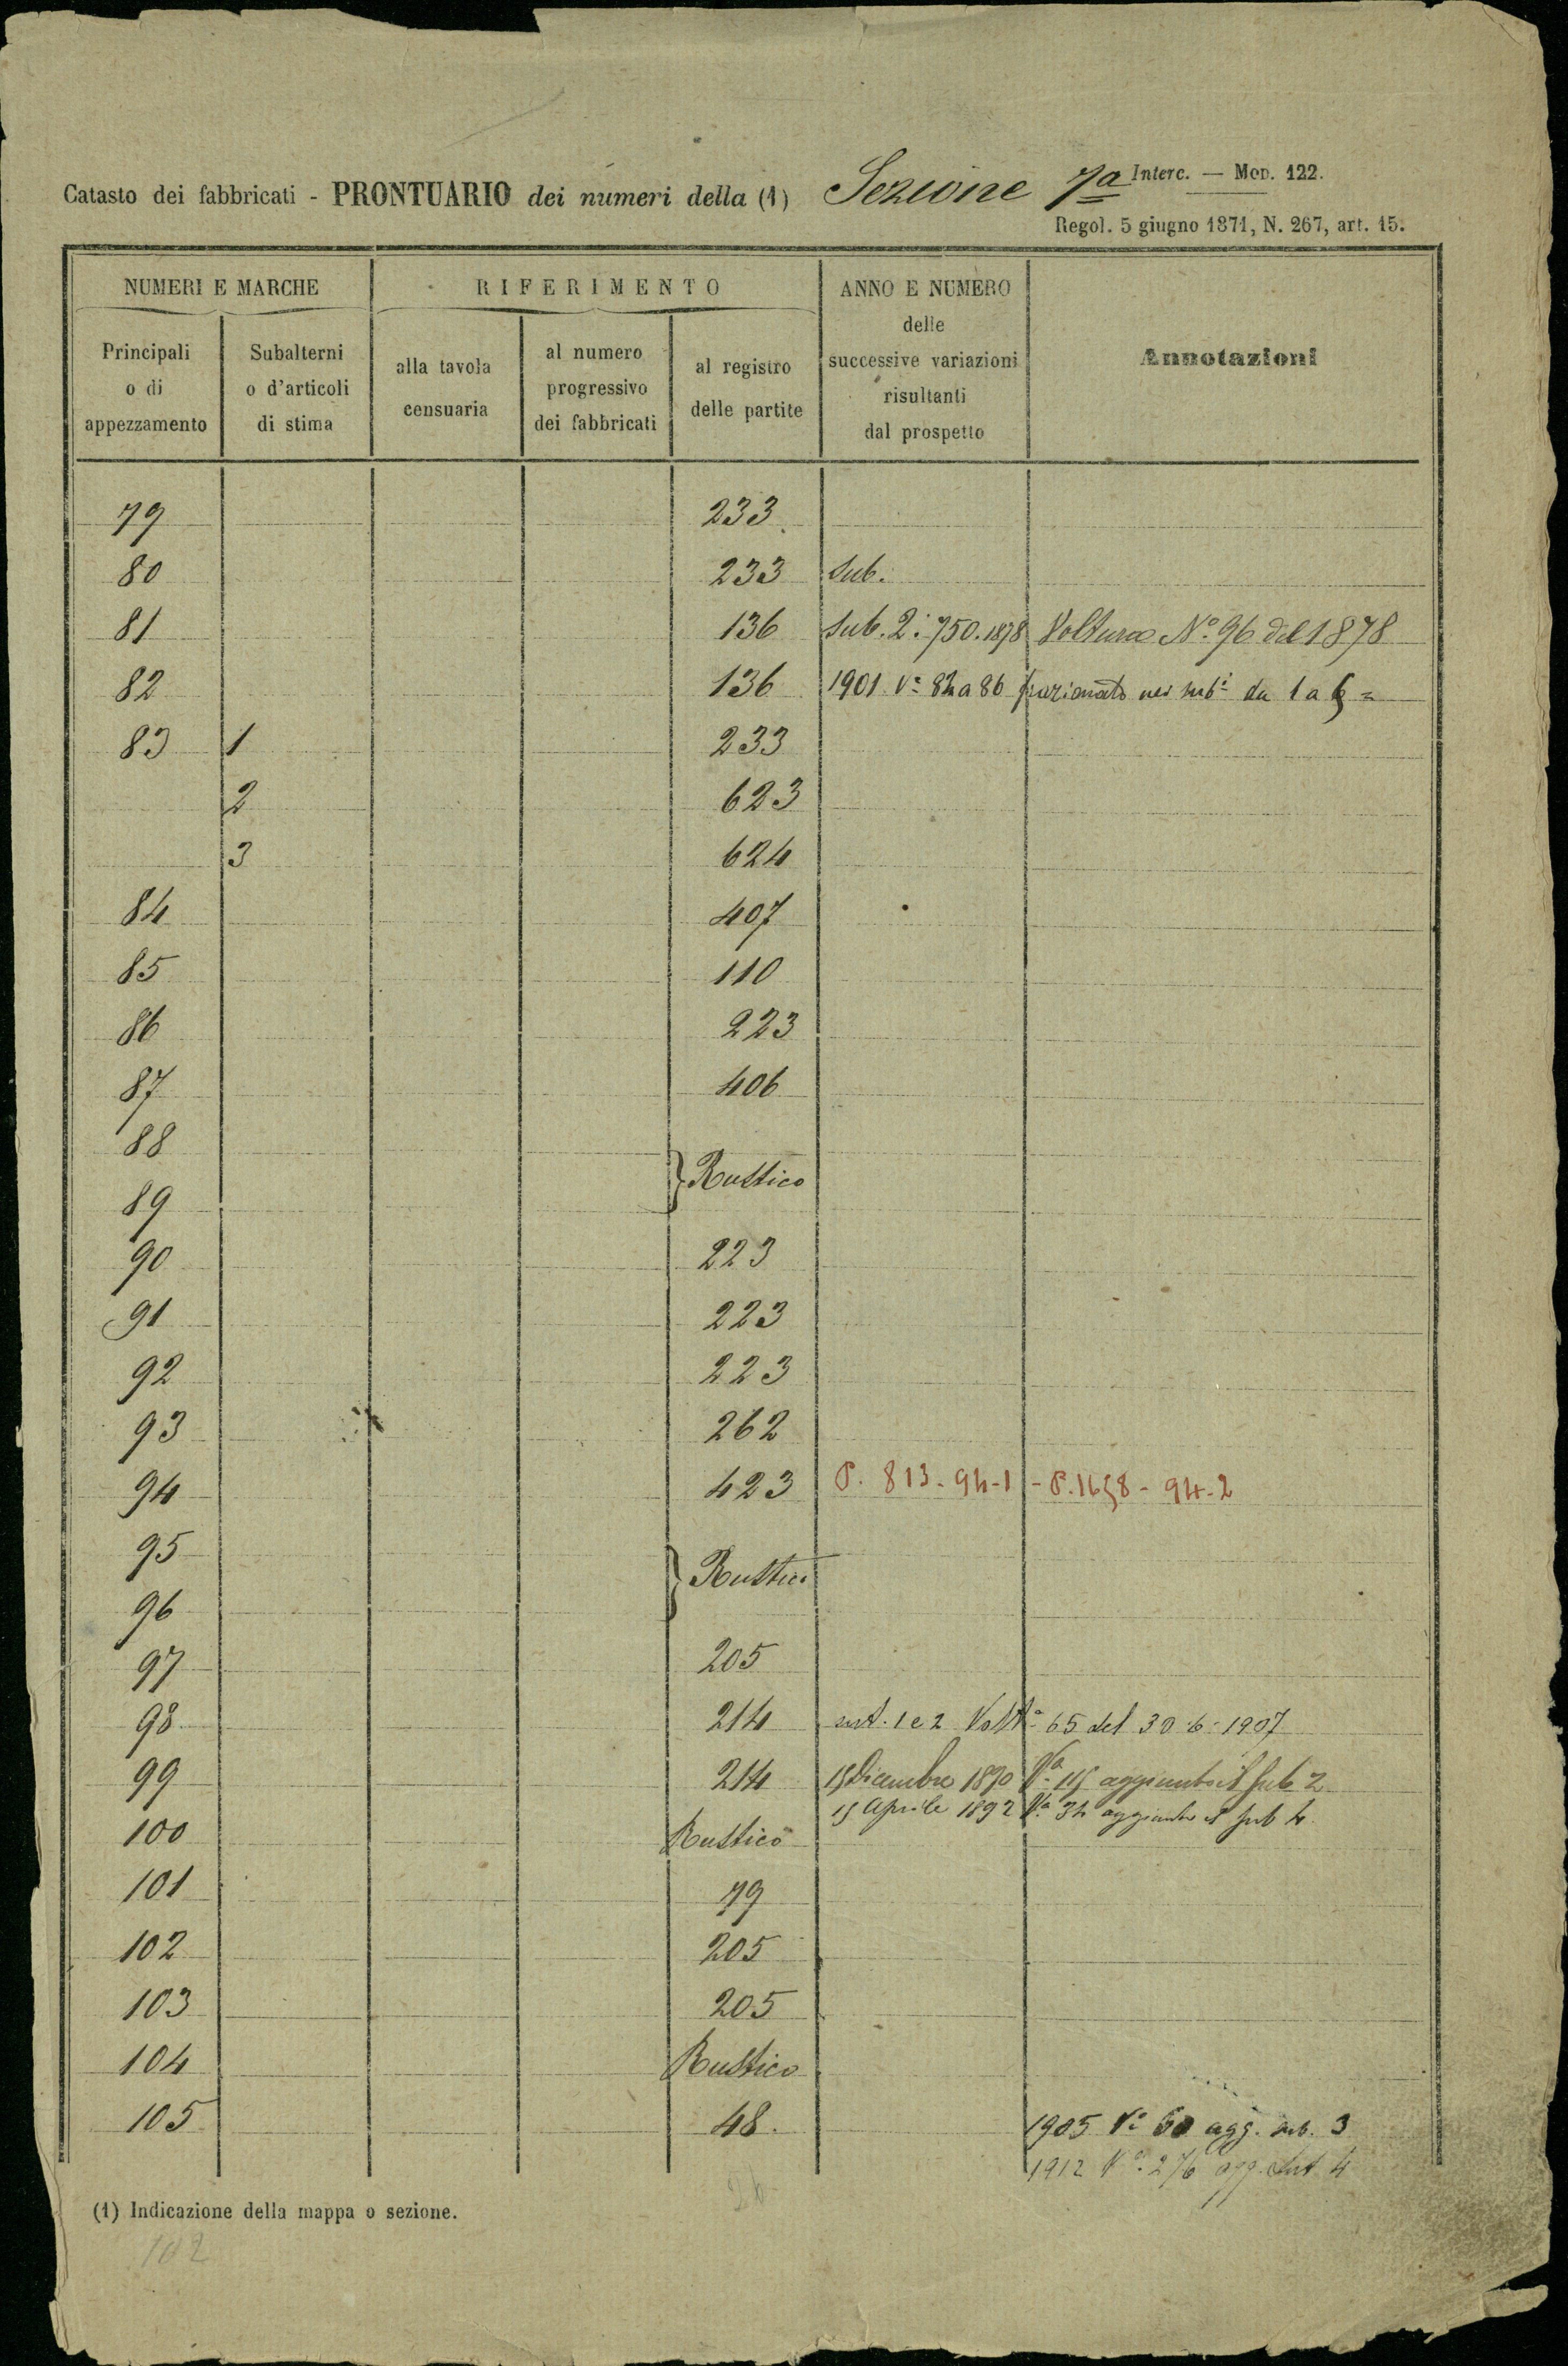 Catasto dei fabbricati - PRONTUARIO dei numeri della (1) Sezione 7a
Interc. — Mod. 122.
Regol. 5 giugno 1871, N. 267, art. 15.
NUMERI E MARCHE
RIFERIMENTO
ANNO E NUMERO
delle
successive variazioni
risultanti
dal prospetto
Annotazioni
Principali
o di
appezzamento
Subalterni
o d'articoli
di stima
alla tavola
censuaria
al numero
progressivo
dei fabbricati
al registro
delle partite
79 233
80 233 Sub.
81 136 Sub. 2: 750. 1878 Voltura N.º 96 del 1878
82 136 1901 Vª 82 a 86 frazionato nei subⁱ da 1 a 5 =
83 1 233
2 623
3 624
84 407
85 110
86 223
87 406
88
} Rustico
89
90 223
91 223
92 223
93 262
94 423 P. 813 - 94-1 - P. 1658 - 94-2
95
} Rustici
96
97 205
98 214 1 e 2 Voltª 65 del 30-6-1907
99 214 15 Dicembre 1890 Vª 115 aggiunto il sub 2
15 Aprile 1892 Vª 34 aggiunto il sub 4
100 Rustico
101 79
102 205
103 205
104 Rustico
105 48. 1905 Vª 60 agg. sub. 3
1912 Vª 276 agg. sub 4
26
(1) Indicazione della mappa o sezione.
102